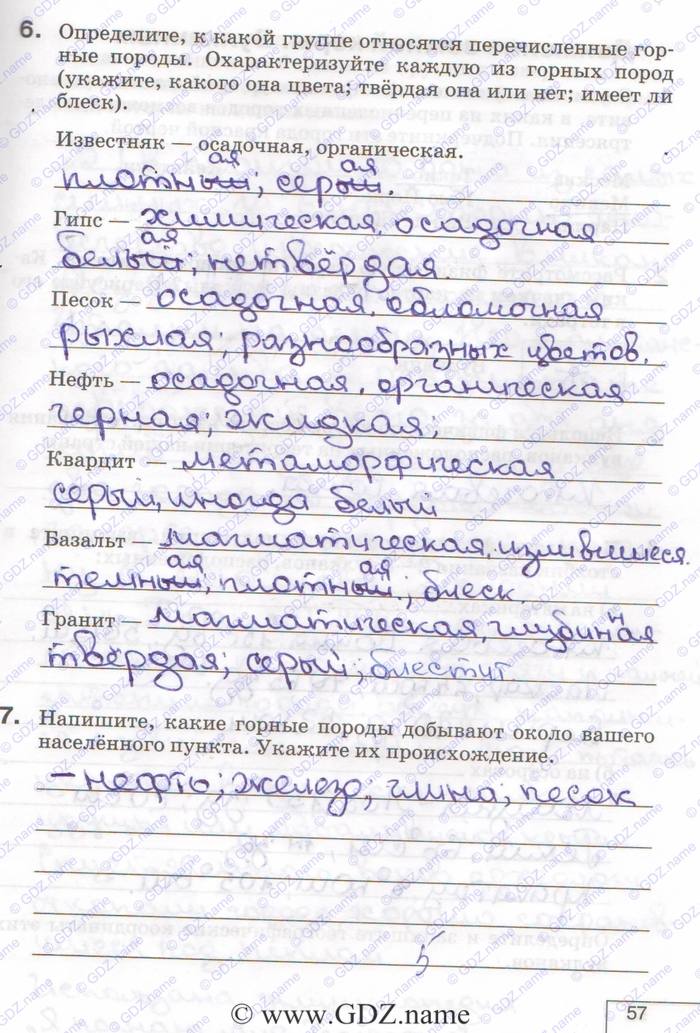 6. Определите, к какой группе относятся перечисленные гор-
ные породы. Охарактеризуйте каждую из горных пород
(укажите, какого она цвета; твёрдая она или нет; имеет ли
блеск).
Известняк — осадочная, органическая.
ая ая
плотный; серый.
Гипс — химическая, осадочная
ая
белый; нетвёрдая
Песок — осадочная, обломочная
рыхлая; разнообразных цветов.
Нефть — осадочная, органическая
черная; жидкая.
Кварцит — метаморфическая
серый, иногда белый
Базальт — магматическая, излившиеся.
ая ая
темный; плотный; блеск
Гранит — магматическая, глубинная
твёрдая; серый; блестит.
7. Напишите, какие горные породы добывают около вашего
населённого пункта. Укажите их происхождение.
– нефть; железо; глина; песок
5
57
© www.GDZ.name